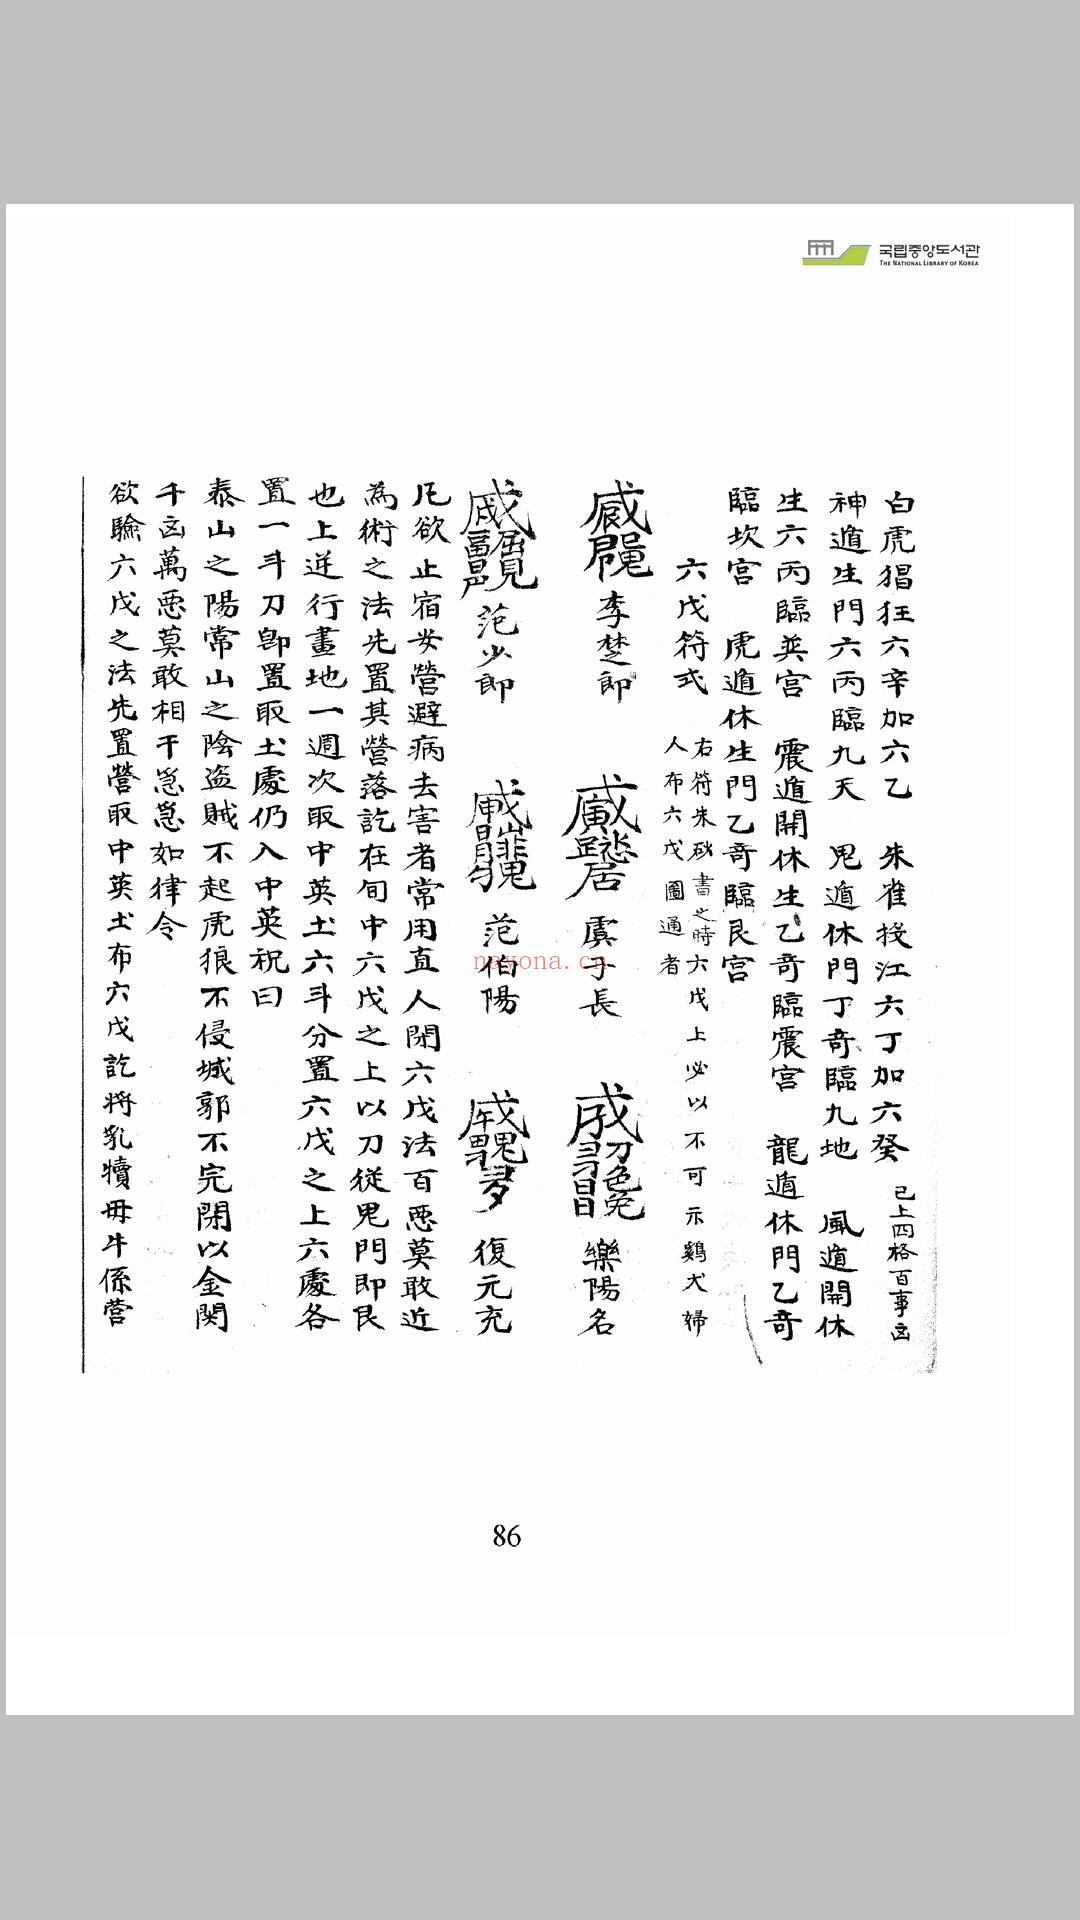 국립중앙도서관
THE NATIONAL LIBRARY OF KOREA
白虎猖狂六辛加六乙 朱雀投江六丁加六癸 已上四格百事凶
神遁生門六丙臨九天 鬼遁休門丁奇臨九地 風遁開休
生六丙臨巽宮 震遁開休生乙奇臨震宮 龍遁休門乙奇
臨坎宮 虎遁休生門乙奇臨艮宮
六戊符式 右符朱砂書之時六戊上必以不可示鷄犬婦
人布六戊圖通者
李楚郎 虞子長 樂陽名
范少郎 范伯陽 復元充
凡欲止宿安營避病去害者常用直人閉六戊法百惡莫敢近
為術之法先置其營落訖在旬中六戊之上以刀從鬼門即艮
也上逆行畫地一週次取中英土六斗分置六戊之上六處各
置一斗刀卽置取土處仍入中英祝曰
泰山之陽常山之陰盜賊不起虎狼不侵城郭不完閉以金関
千凶萬惡莫敢相干急急如律令
欲驗六戊之法先置營取中英土布六戊訖將乳犢母牛係營
nayona.cn
86